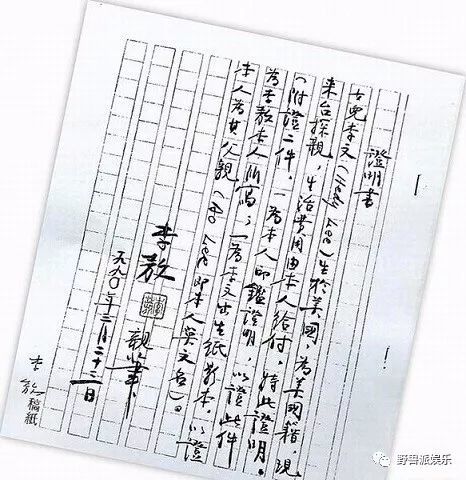 證明書
女兒李文(Hedy Lee)生於美國,為美國籍,現
來台探親,生活費用由本人給付,特此證明。
(附證二件,一為本人印鑑證明,以證此件
為李敖本人所寫;一為李文出生紙影本,以證
本人為其父親(Ao Lee 即本人英文名)。
李敖 親筆
一九九〇年三月二十二日
李敖稿紙
野兽派娱乐